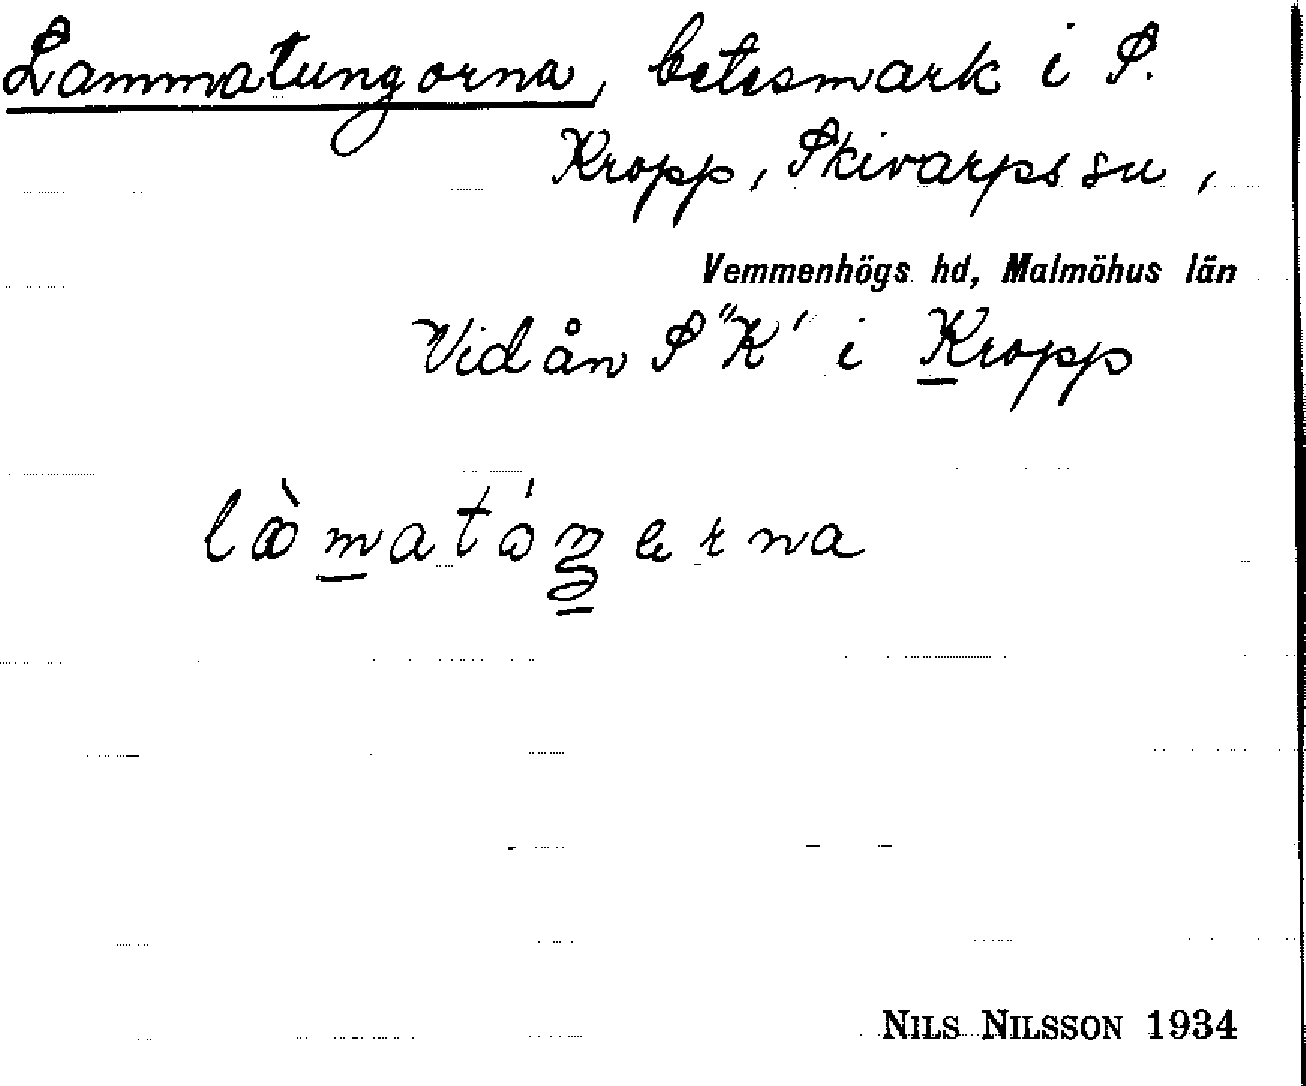 Lammatungorna, betesmark i S.
Kropp, Skivarps sn,
Vemmenhögs hd, Malmöhus län
Vid ån S "K" i Kropp
NILS NILSSON 1934